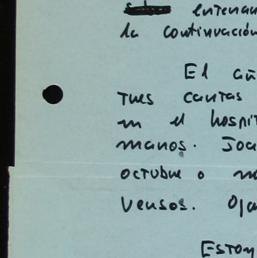 entenan
la continuación
El añ
tres cartas
en el hospit
manos. Joa
octubre o no
versos. Oja
Estoy